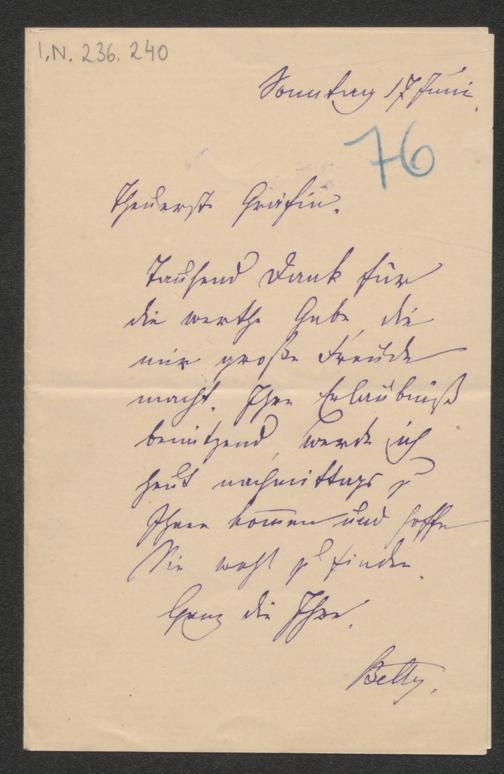 I.N. 236.240
Sonntag 17 Juni.
76
Theuerste Gräfin.
Tausend Dank für
die werthe Gabe, die
mir große Freude
macht. Ihre Erlaubniß
benützend, werde ich
heut nachmittags zu
Ihnen kommen und hoffe
Sie wohl zu finden.
Ganz die Ihre.
Betty.